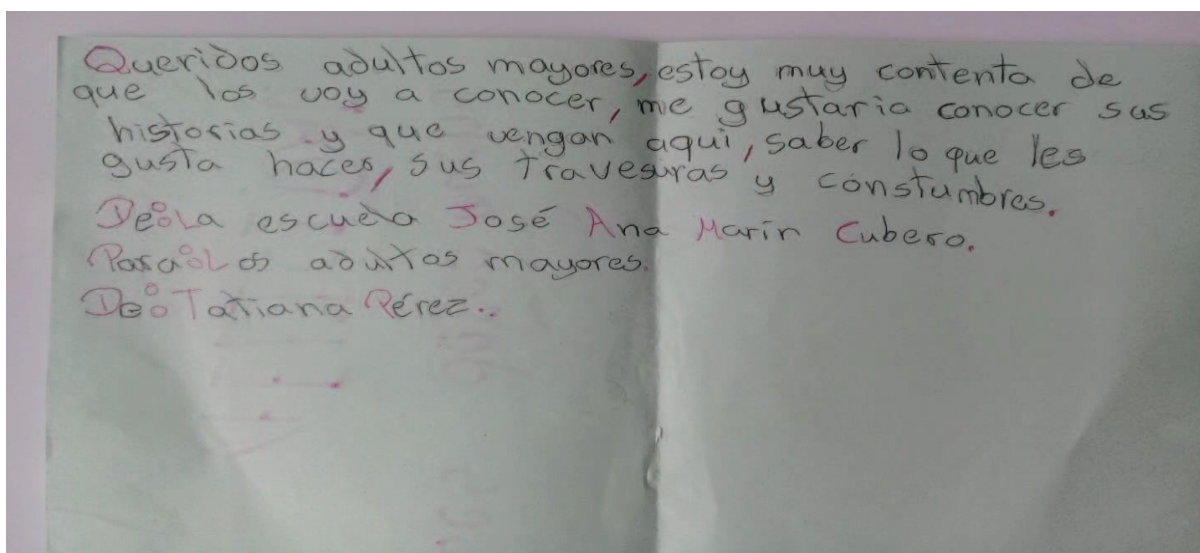 Queridos adultos mayores, estoy muy contenta de
que los voy a conocer, me gustaria conocer sus
historias y que vengan aqui, saber lo que les
gusta hacer, sus travesuras y constumbres.
De: La escuela José Ana Marín Cubero.
Para: Los adultos mayores.
De: Tatiana Pérez..